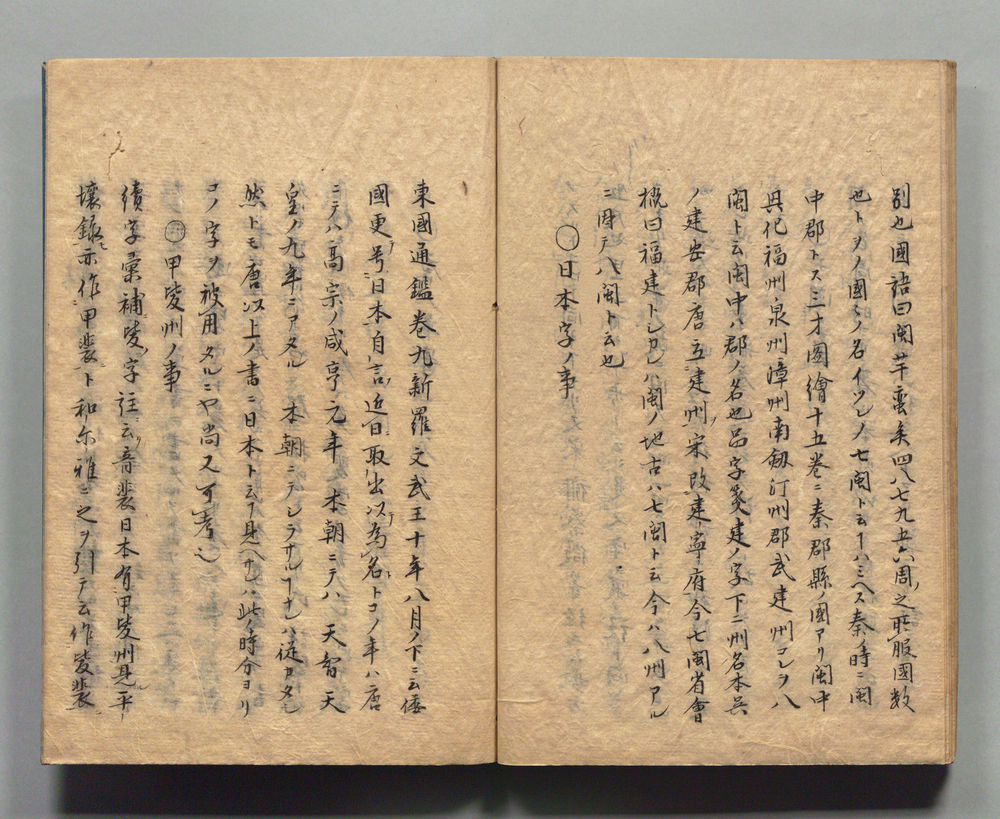 別也國語曰閩芊蠻矣四八七九五六周之所服國数
也トヲノ國ミノ名イツレノ七閩ト云フハミヘス秦ノ時ニ閩
中郡トス三才圖繪十五巻ニ秦郡縣ノ圖アリ閩中
興化福州泉州漳州南劔汀州郡武建州コレヲ八
閩ト云閩中ハ郡ノ名也品字箋建ノ字下ニ州名本呉
ノ建安郡唐立建州宋改建寧府今七閩省會
概曰福建トシカレハ閩ノ地古ハ七閩ト云今ハ八州アル
ニ因テ八閩ト云也
〇日本字ノ事
東國通鑑巻九新羅文武王十年八月ノ下ニ云倭
國更号日本自言近日取出以為名トコノ年ハ唐
ニテハ高宗ノ咸亨元年本朝ニテハ天智天
皇ノ九年ニアタル本朝ニテシラサルフナレハ従カタシ
然トモ唐以上ノ書ニ日本ト云フ見ヘサレハ此ノ時分ヨリ
コノ字ヲ被用タルニや尚又可考之
甲斐州ノ事
續字彙補㚆字註云音裴日本有甲㚆州見平
壤録亦作甲裴ト和尓雅ニ之ヲ引テ云作㚆裴